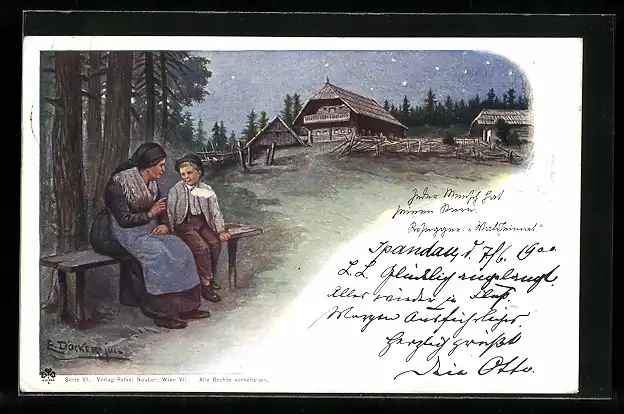 Jeder Mensch hat
seinen Stern.
Rosegger: „Waldheimat“
Spandau, d. 7/6. 1900
L. L. Glücklich angelangt.
Alles wieder in
Morgen Ausführliches
Herzlich grüßt
Dein Otto.
E. DÖCKER jun.
Serie VI. Verlag Rafael Neuber, Wien VII. Alle Rechte vorbehalten.